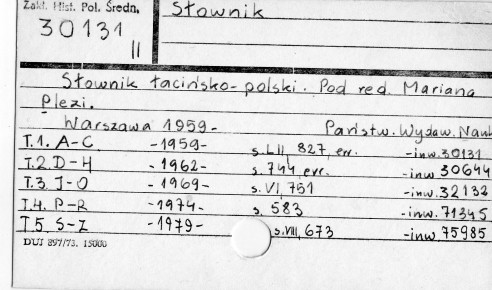 Zakł. Hist. Pol. Średn.
30131
II
Słownik
Słownik łacińsko-polski. Pod red. Mariana
Plezi.
Warszawa 1959- Państw. Wydaw. Nauk
T.1. A-C -1959- s. LII, 827, err. -inw. 30131
T.2. D-H -1962- s. 744, err. -inw 30644
T.3. I-O -1969- s. VI, 751 -inw. 32132
T.4. P-R -1974- s. 583 -inw. 71345
T.5. S-Z -1979- s. VIII, 673 -inw 75985
DUJ 897/73. 15000